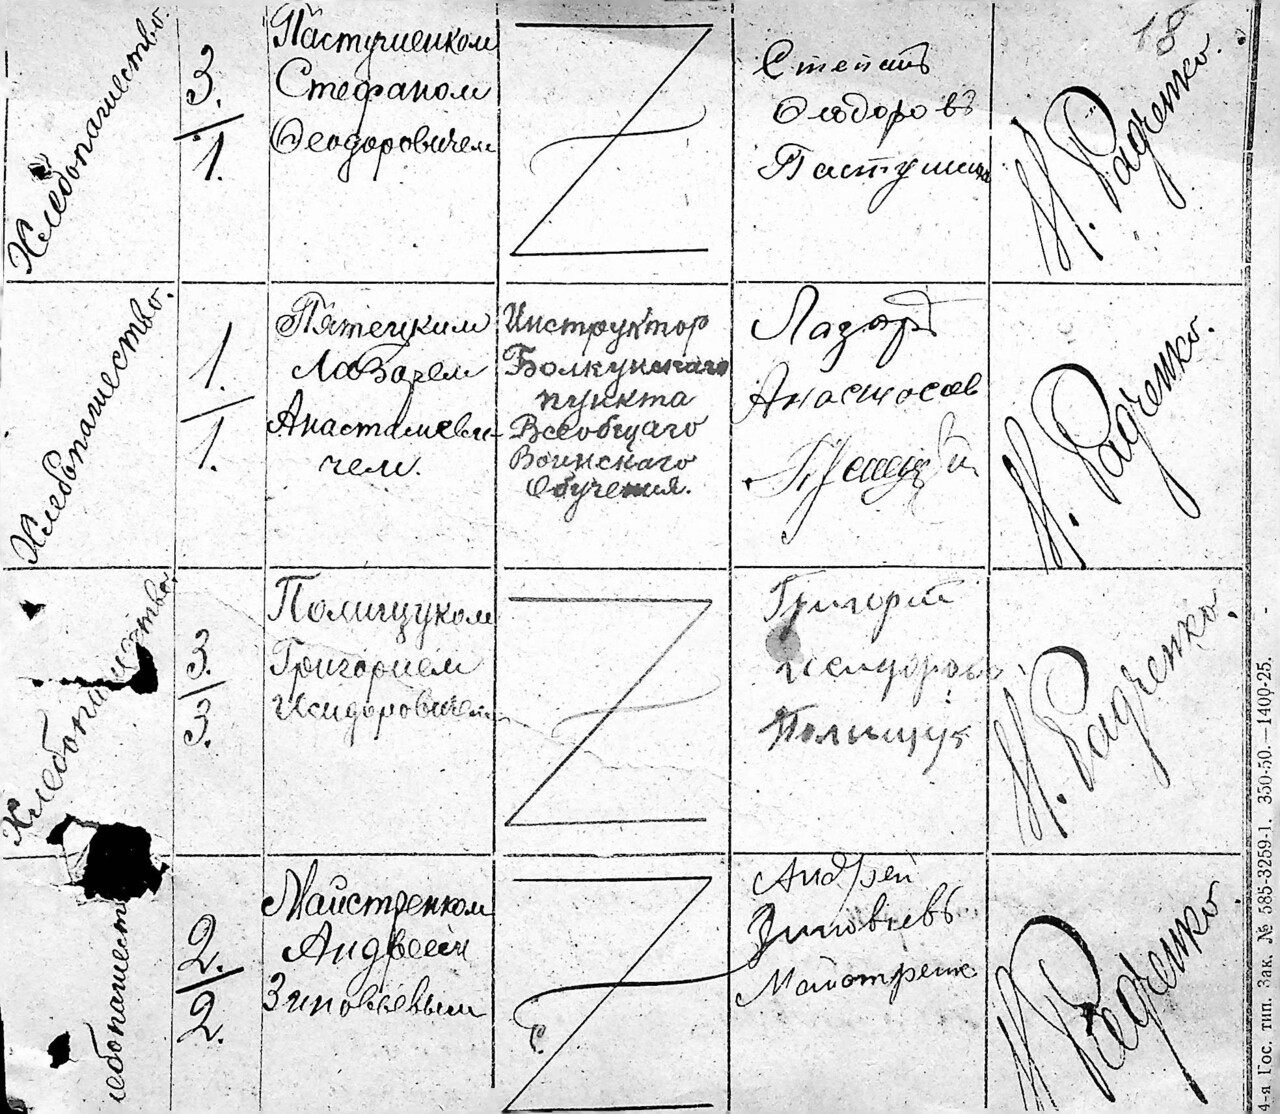 18
Хлебопашество.
3.
1.
Пастушенком
Стефаном
Феодоровичем
Степанъ
Федоровъ
М. Радченко.
Хлебопашество.
1.
1.
Пятецким
Лазарем
Анастасиеви-
чем.
Инструктор
Болкунскаго
пункта
Всеобщаго
Воинскаго
Обучения.
Лазарь
Анастасов
М. Радченко.
Хлебопашество.
3.
3.
Полищуком
Григорием
Исидоровичем
Григорий
Исидоровъ
Полищук
М. Радченко.
лебопашество
2.
2.
Майстренком
Андреем
Зиновьевым
Андрей
Зиновьевъ
Майстренк
М. Радченко.
4-я Гос. тип. Зак. № 585-3259-1. 350-50.—1400-25.